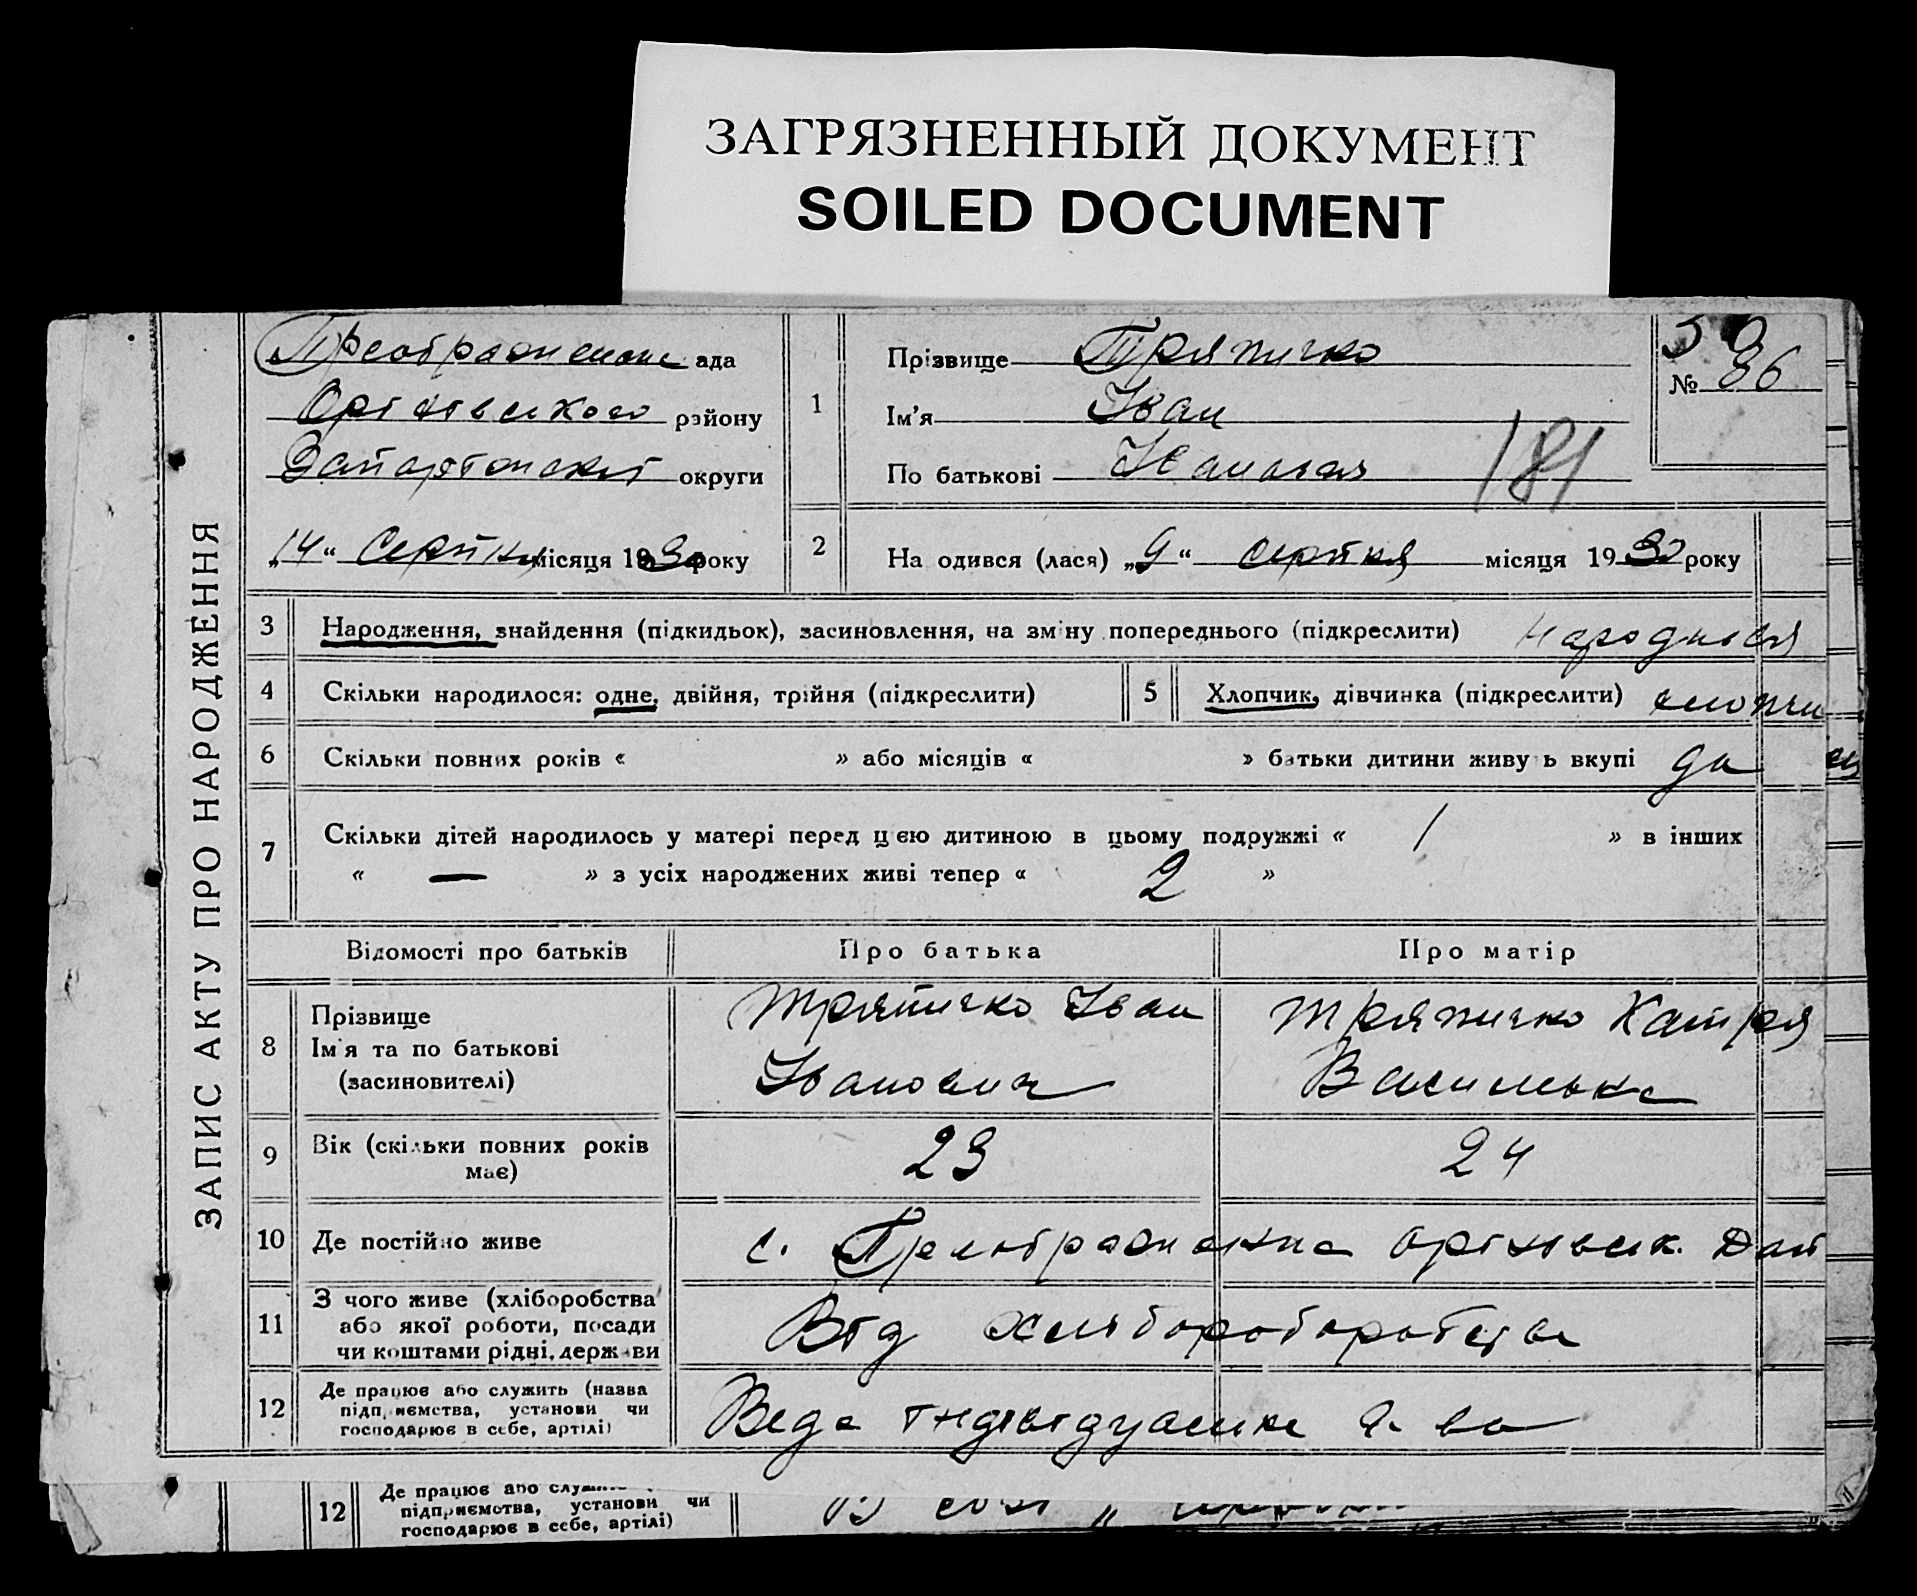 ЗАГРЯЗНЕННЫЙ ДОКУМЕНТ
SOILED DOCUMENT
ЗАПИС АКТУ ПРО НАРОДЖЕННЯ
ада
Оріхівського району
округи
„14“ Серпня місяця 1930 року
1
Прізвище Тряпичко
Ім'я Іван
По батькові
№ 86
181
2
На одився (лася) „9“ серпня місяця 1930 року
3 Народження, знайдення (підкидьок), засиновлення, на зміну попереднього (підкреслити) народився
4 Скільки народилося: одне, двійня, трійня (підкреслити)
5 Хлопчик, дівчинка (підкреслити)
6 Скільки повних років « » або місяців « » батьки дитини живу ь вкупі да
7 Скільки дітей народилось у матері перед цєю дитиною в цьому подружжі « 1 » в інших
« — » з усіх народжених живі тепер « 2 »
Відомості про батьків Про батька Про матір
8 Прізвище
Ім'я та по батькові
(засиновителі)
Тряпичко Іван
Іванович
Тряпичко Катря
9 Вік (скільки повних років
має)
23 24
10 Де постійно живе
с.
11 З чого живе (хліборобства
або якої роботи, посади
чи коштами рідні, держави
Від
12 Де працює або служить (назва
підприємства, установи чи
господарює в себе, артілі)
Веде
12 Де працює або
підприємства, установи чи
господарює в себе, артілі)